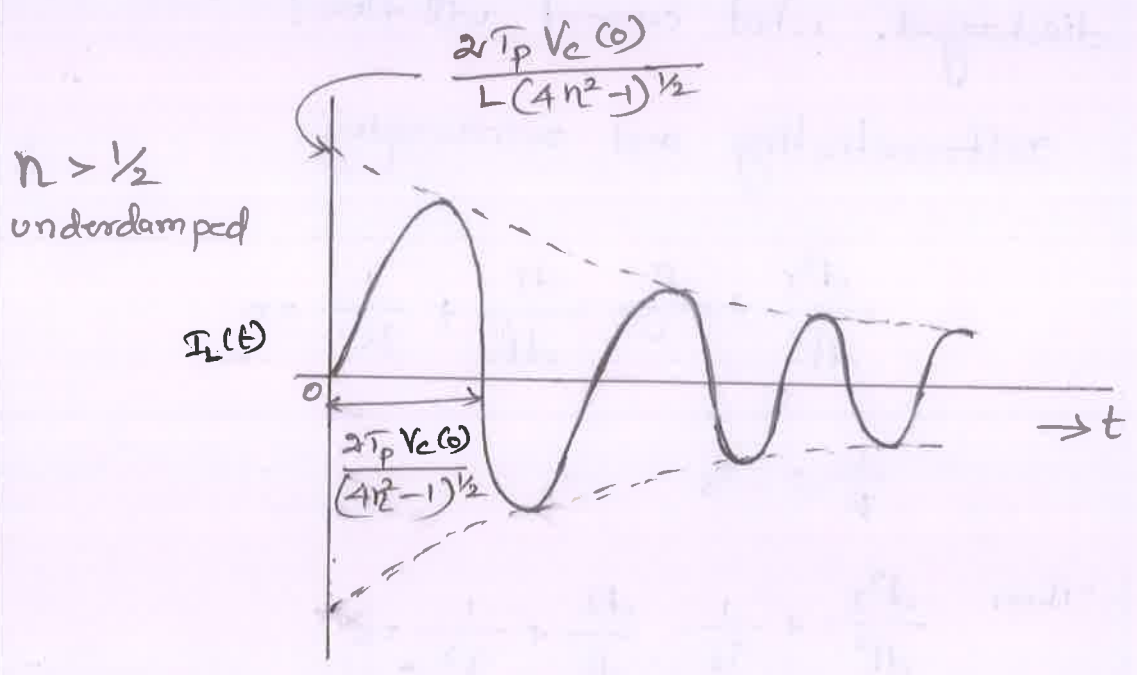 2T_p V_c(0)
L(4η²-1)^½
η > ½
underdamped
I_L(t)
0
→ t
2T_p V_c(0)
(4η²-1)^½